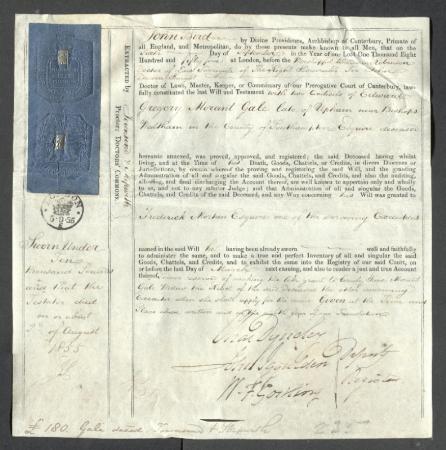 John Bird by Divine Providence, Archbishop of Canterbury, Primate of
all England, and Metropolitan, do by these presents make known to all Men, that on the
Day of in the Year of our Lord One Thousand Eight
Hundred and fifty five at London, before the
Doctor of Laws, Master, Keeper, or Commissary of our Prerogative Court of Canterbury, law-
fully constituted the last Will and Testament with two Codicils of Edward
Gregory Morant Gale late of Upham near Bishops
Waltham in the County of Southampton Esquire deceased
hereunto annexed, was proved, approved, and registered; the said Deceased having whilst
living, and at the Time of his Death, Goods, Chattels, or Credits, in divers Dioceses or
Jurisdictions, by reason whereof the proving and registering the said Will, and the granting
Administration of all and singular the said Goods, Chattels, and Credits, and also the auditing,
allowing, and final discharging the Account thereof, are well known to appertain only and wholly
to us, and not to any inferior Judge; and that Administration of all and singular the Goods,
Chattels, and Credits of the said Deceased, and any Way concerning his Will was granted to
Frederick Morton Esquire one of the surviving Executors
named in the said Will he having been already sworn well and faithfully
to administer the same, and to make a true and perfect Inventory of all and singular the said
Goods, Chattels, and Credits, and to exhibit the same into the Registry of our said Court, on
or before the last Day of March next ensuing, and also to render a just and true Account
thereof. power reserved of making the like grant to
Gale Widow the Relict of the said Deceased the other surviving
Executor when she shall apply for the same Given at the Time and
Place above written and in the year of our Translation
Chas Dyneley
John Iggulden
W. F. Gostling
Deputy
Registers
EXTRACTED by
Proctor Doctors Commons.
LONDON
Sworn Under
Ten
thousand Pounds
and that the
Testator died
on or about
of August
1855
£ 180. Gale dated